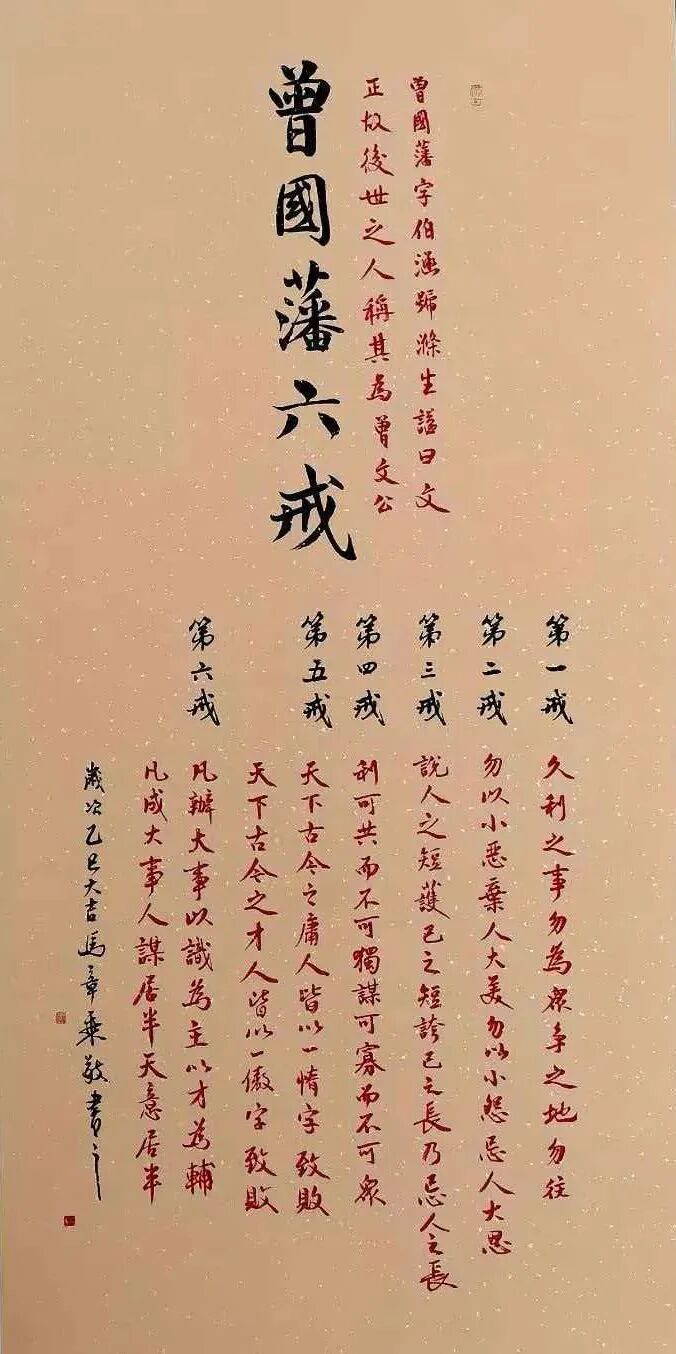 曾國藩字伯涵號滌生謚曰文
正故後世之人稱其為曾文公
曾國藩六戒
第一戒 久利之事勿為眾爭之地勿往
第二戒 勿以小惡棄人大美勿以小怨忌人大恩
第三戒 說人之短護己之短誇己之長乃忌人之長
第四戒 利可共而不可獨謀可寡而不可眾
第五戒 天下古今之庸人皆以一惰字致敗
天下古今之才人皆以一傲字致敗
第六戒 凡辦大事以識為主以才為輔
凡成大事人謀居半天意居半
歲次乙巳大吉馬章乘敬書之